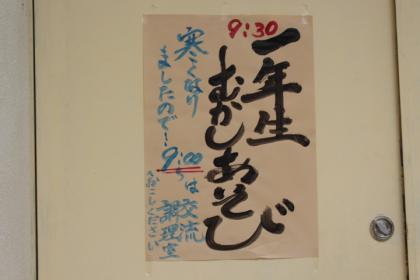 9:30
一年生
むかしあそび
寒くなり
ましたので!
9:00
からは交流
調理室
へおこしください